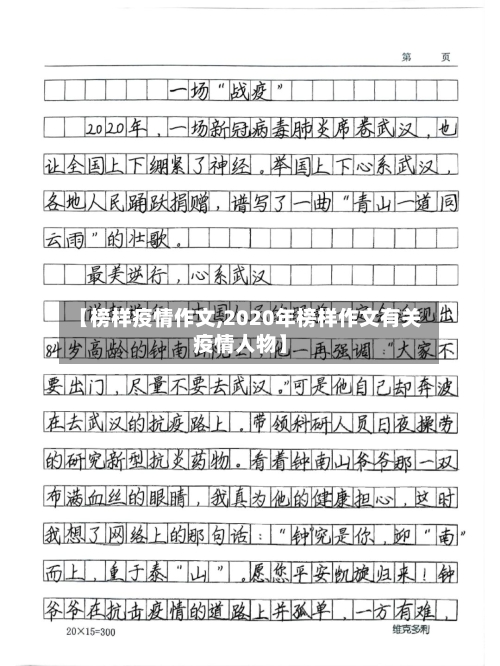 第 页
一场“战疫”
2020年，一场新冠病毒肺炎席卷武汉，也
让全国上下绷紧了神经。举国上下心系武汉，
各地人民踊跃捐赠，谱写了一曲“青山一道同
云雨”的壮歌。
最美逆行，心系武汉
【榜样疫情作文,2020年榜样作文有关
疫情人物】
84岁高龄的钟南山 一再强调：“大家不
要出门，尽量不要去武汉。”可是他自己却奔波
在去武汉的抗疫路上。带领科研人员日夜操劳
的研究新型抗炎药物。看着钟南山爷爷那一双
布满血丝的眼睛，我真为他的健康担心，这时
我想了网络上的那句话：“钟”究是你，迎“南”
而上，重于泰“山”。愿您平安凯旋归来！钟
爷爷在抗击疫情的道路上并孤单，一方有难，
20×15=300
维克多利